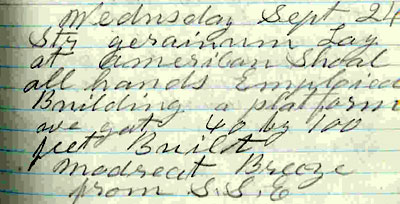 Wednsday Sept 24
Str gerainum Lay
at American Shoal
all hands Emploied
Building a platform
we got 40 by 100
feet Built
Madreat Breeze
from S.S.E